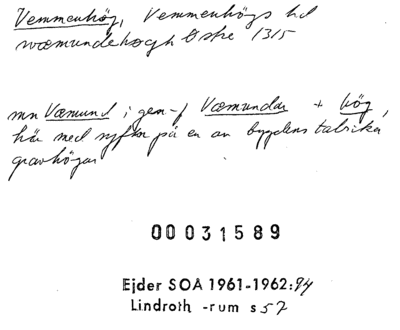 Vemmenhög, Vemmenhögs hd
wæmundehøgh Østre 1315
mn Væmund i gen-f Væmundar + hög,
här med syftn på en av bygdens talrika
gravhögar
00031589
Ejder SOA 1961-1962:94
Lindroth -rum s 57